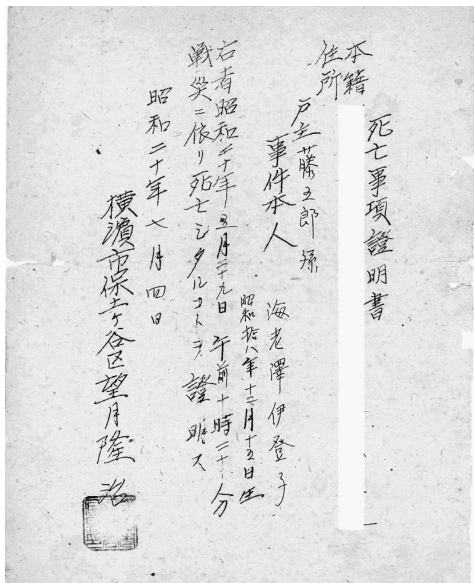 死亡事項證明書
本籍
住所
戸主藤五郎孫
事件本人 海老澤伊登子
昭和拾八年十二月十五日生
右者昭和二十年五月二十九日午前十時二十分
戦災ニ依リ死亡シタルコトヲ證明ス
昭和二十年七月四日
横濱市保土ヶ谷区望月隆治